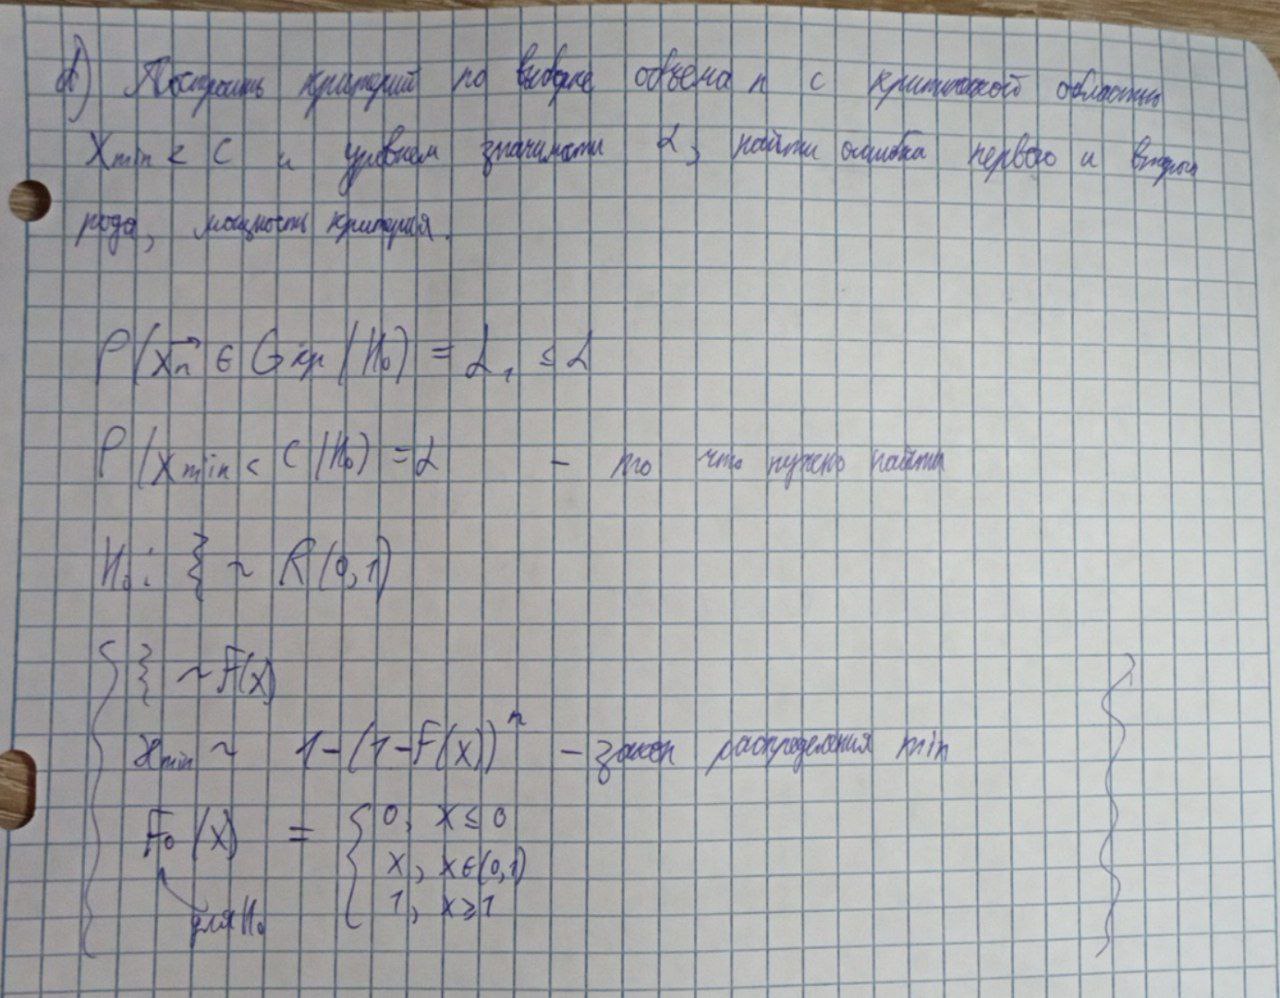 d) Построить критерий по выборке объема n с критической областью
Xmin < C и уровнем значимости α, найти ошибка первого и второго
рода, мощность критерия.
P(x⃗n ∈ Gкр / H₀) = α₁ ≤ α
P(Xmin < C / H₀) = α – то что нужно найти
H₀: ξ ~ R(0,1)
ξ ~ F(x)
xmin ~ 1-(1-F(x))ⁿ – закон распределения min
F₀(x) = { 0, x ≤ 0
x, x ∈ (0,1)
1, x ≥ 1
для H₀